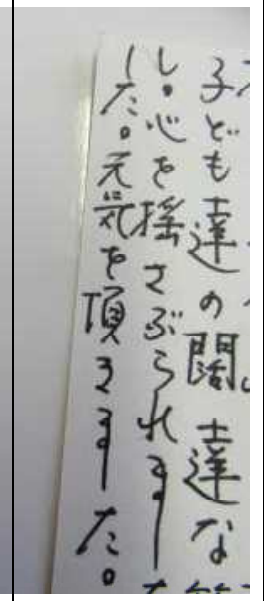 子ども達の闊達な
し。心を揺さぶられまし
した。元気を頂きました。